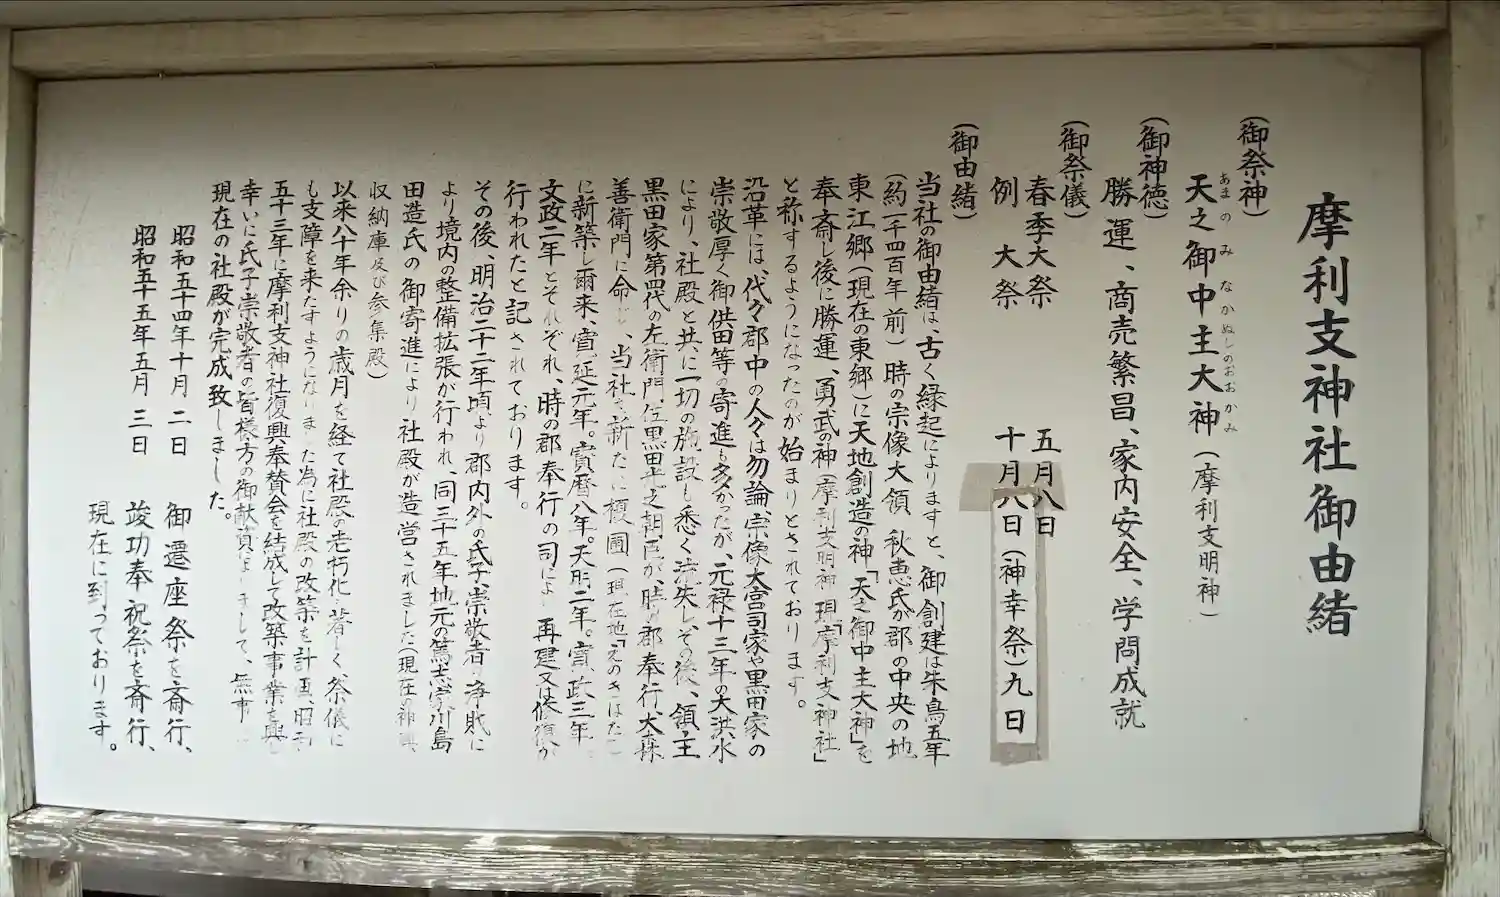 摩利支神社御由緒
(御祭神)
天之御中主大神(摩利支明神)
あまのみなかぬしのおおかみ
(御神徳)
勝運、商売繁昌、家内安全、学問成就
(御祭儀)
春季大祭 五月八日
例大祭 十月八日(神幸祭)九日
(御由緒)
当社の御由緒は、古く縁起によりますと、御創建は朱鳥五年
(約一千四百年前)時の宗像大領、秋恵氏が郡の中央の地
東江郷(現在の東郷)に天地創造の神「天之御中主大神」を
奉斎し後に勝運、勇武の神(摩利支明神)現「摩利支神社」
と称するようになったのが始まりとされております。
沿革には、代々郡中の人々は勿論、宗像大宮司家や黒田家の
崇敬厚く御供田等の寄進も多かったが、元禄十三年の大洪水
により、社殿と共に一切の施設も悉く流失し、その後、領主
黒田家第四代の左衛門佐黒田光之朝臣が、時の郡奉行、大森
善衛門に命じ、当社を新たに榎圃(現在地「えのきばたけ
に新築し爾来、寛延元年。寳暦八年。天明二年。寛政三年
文政二年とそれぞれ、時の郡奉行の司により再建又は修復が
行われたと記されております。
その後、明治二十二年頃より郡内外の氏子、崇敬者の浄財に
より境内の整備拡張が行われ、同三十五年地元の篤志家川島
田造氏の御寄進により社殿が造営されました(現在の神輿
収納庫及び参集殿)
以来八十年余りの歳月を経て社殿の老朽化著しく祭儀に
も支障を来たすようになりました為に社殿の改築を計画、昭和
五十三年に摩利支神社復興奉賛会を結成して改築事業を興し
幸いに氏子崇敬者の皆様方の御献資によりまして、無事
現在の社殿が完成致しました。
昭和五十四年十月二日 御遷座祭を斎行、
昭和五十五年五月三日 竣功奉祝祭を斎行、
現在に到っております。